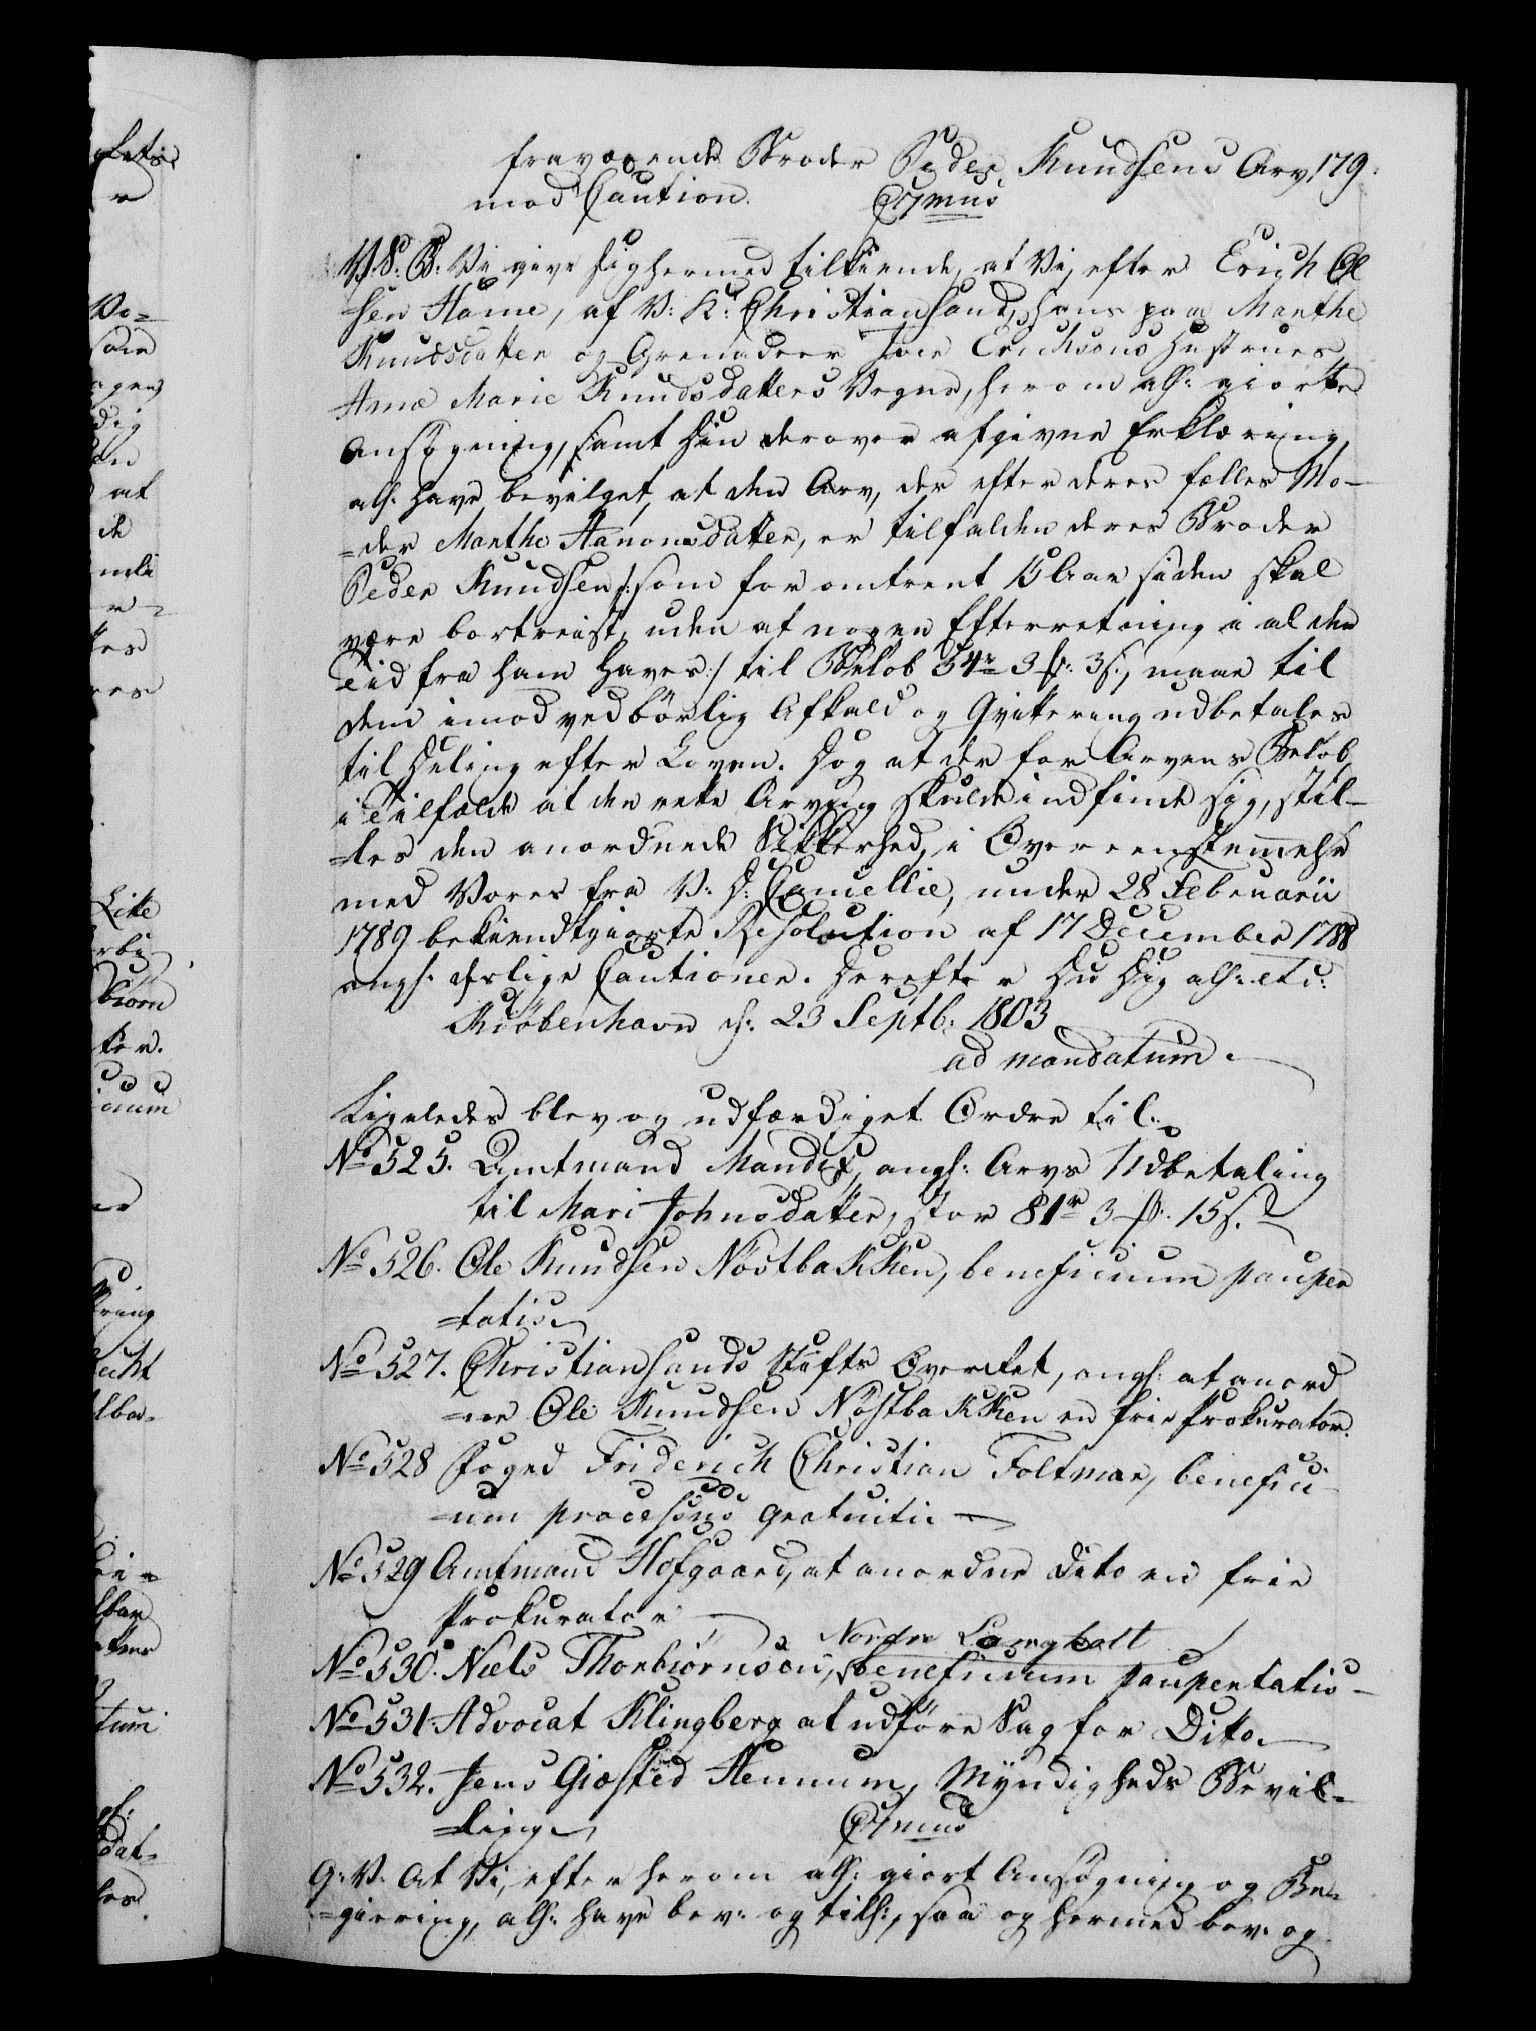 fraværende Broder Peder Knudsens Arv 179.
mod Caution.
V. S. B: Vi give Dig hermed tilkiende, at Vi, efter Erich Ol
=sen Hame, af V: K: Christiansand, hans paa Marthe
Knudsdatter og Grenadeer Tore Erichsens Hustrues
Anne Marie Knudsdatters Vegne, herom allr: giorte
Ansøgning, samt Din derover afgivne Erklæring,
allr: have bevilget, at den Arv, der efter deres fælles Mo-
=der Marthe Aanonsdatter, er tilfalden deres Broder
Peder Knudsen /: som for omtrent 15 Aar siden skal
være bortreist, uden at nogen Efterretning i al den
Tid fra ham haves :/ til Beløb 54 r 3 p: 3 s., maae til
dem imod vedbørlig Afkald og Qvittering udbetales
til Deling efter Loven. Dog at der for Arvens Beløb,
i Tilfælde at den rette Arving skulde indfinde sig, stil-
=les den anordnede Sikkerhed, i Overeensstemmelse
med Vores fra V: D: Cancellie, under 28 Februarii
1789 bekiendtgiorte Resolution af 17 December 1788
angl: deslige Cautioner. Derefter Du Dig allr: etc:
Kiöbenhavn d: 23 Septb: 1803
ad mandatum.
Ligeledes blev og udfærdiget Ordre til:
No 525. Amtmand Mandix, angl: Arvs Udbetaling
til Mari Johnsdatter, stor 81 r 3 p: 15 s.
No 526. Ole Knudsen Nöstbakken, beneficium pauper
=tatis
No 527. Christiansands Stifts Overret, angl: at anord
=ne Ole Knudsen Nöstbakken en frie Prokurator.
No 528 Foged Friderich Christian Foltmar, benefici-
=um processus gratuiti
No 529 Amtmand Hofgaard, at anordne Dito en frie
Prokurator
Nordre Langholt
No 530. Niels Thorbiörnsen, beneficium paupertatis
No 531. Advocat Klingberg at udføre Sag for Dito
No 532. Jens Giæsted Hennum, Myndigheds Bevil-
=ling
G: V: At Vi, efter herom allr: giort Ansøgning og Be-
=giering, allr: have bev: og till:, saa og hermed bev: og